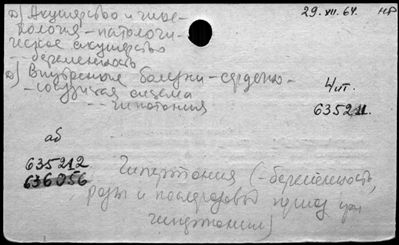 а) Акушерство и гине-
кология - патологи-
ческое акушерство
- беременность
29.XII.64. НР
а) Внутренние болезни - сердечно-
- сосудистая система
- гипотония
4 ит.
63521.
аб
635212
636056
Гипертония (- беременность,
роды и послеродовой период при
гипертонии)